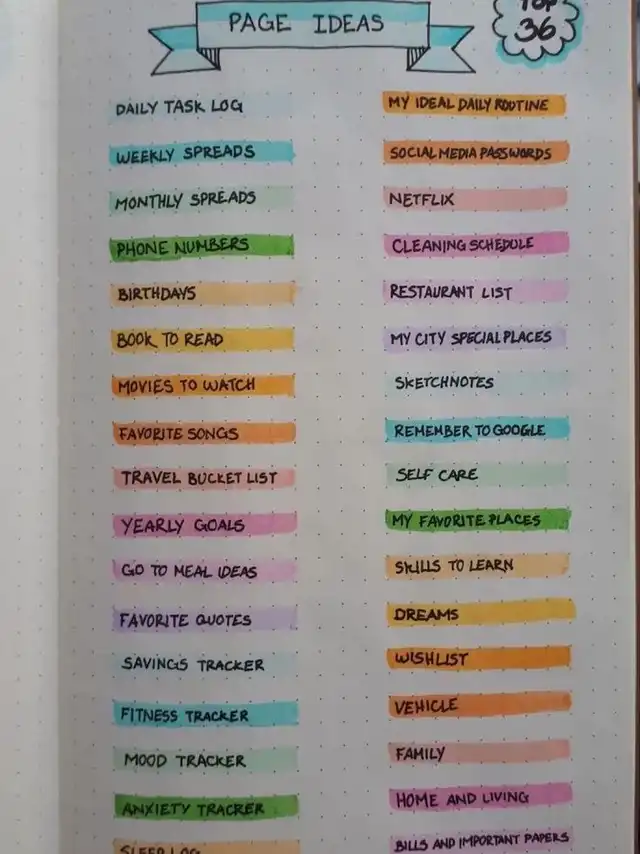 PAGE IDEAS
TOP
36
DAILY TASK LOG
WEEKLY SPREADS
MONTHLY SPREADS
PHONE NUMBERS
BIRTHDAYS
BOOK TO READ
MOVIES TO WATCH
FAVORITE SONGS
TRAVEL BUCKET LIST
YEARLY GOALS
GO TO MEAL IDEAS
FAVORITE QUOTES
SAVINGS TRACKER
FITNESS TRACKER
MOOD TRACKER
ANXIETY TRACKER
SLEEP LOG
MY IDEAL DAILY ROUTINE
SOCIAL MEDIA PASSWORDS
NETFLIX
CLEANING SCHEDULE
RESTAURANT LIST
MY CITY SPECIAL PLACES
SKETCHNOTES
REMEMBER TO GOOGLE
SELF CARE
MY FAVORITE PLACES
SKILLS TO LEARN
DREAMS
WISHLIST
VEHICLE
FAMILY
HOME AND LIVING
BILLS AND IMPORTANT PAPERS